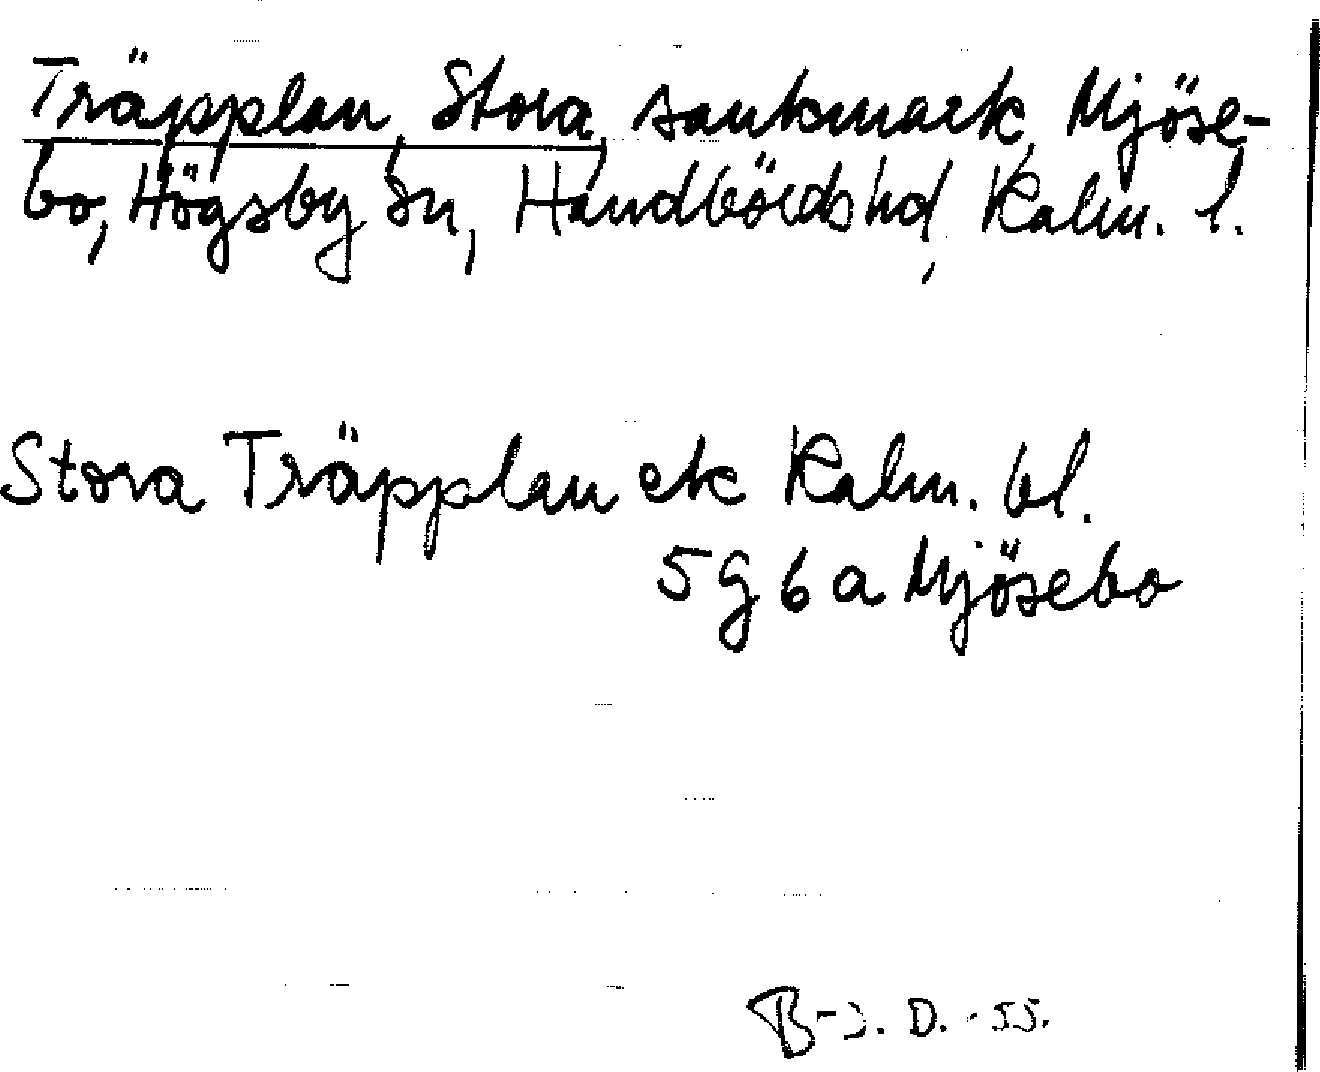 Träpplan, Stora, sankmark, Mjöse-
bo, Högsby sn, Handbörds hd, Kalm. l.
Stora Träpplan ek Kalm. bl.
5g6a Mjösebo
B-J. D. -55.